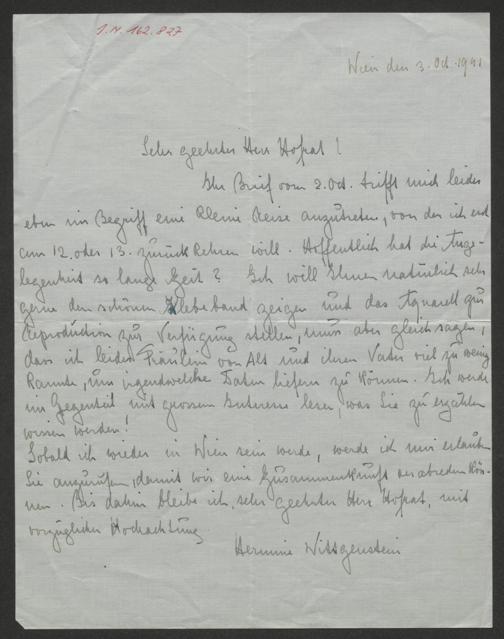 J.N. 162.827
Wien den 3. Oct. 1941
Sehr geehrter Herr Hofrat!
Ihr Brief vom 2. Oct. trifft mich leider
eben im Begriff, eine kleine Reise anzutreten, von der ich erst
am 12. oder 13. zurückkehren will. Hoffentlich hat die Ange-
legenheit so lange Zeit? Ich will Ihnen natürlich sehr
gerne den schönen Klebeband zeigen und das Aquarell zur
Reproduction zur Verfügung stellen, muss aber gleich sagen,
dass ich leider Fräulein von Alt und ihren Vater viel zu wenig
kannte, um irgendwelche Daten liefern zu können. Ich werde
im Gegenteil mit grossem Interesse lesen, was Sie zu erzählen
wissen werden!
Sobald ich wieder in Wien sein werde, werde ich mir erlauben
Sie anzurufen, damit wir eine Zusammenkunft verabreden kön-
nen. Bis dahin bleibe ich, sehr geehrter Herr Hofrat, mit
vorzüglicher Hochachtung
Hermine Wittgenstein